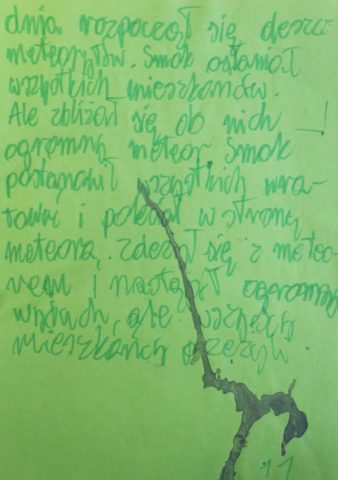 dnia rozpoczął się deszcz
meteorytów. Smok osłaniał
wszystkich mieszkańców.
Ale zbliżał się do nich
ogromny meteor. Smok
postanowił wszystkich ura-
tować i poleciał w stronę
meteora. Zderzył się z meteo-
rem i nastąpił ogromny
wybuch, ale wszyscy
mieszkańcy przeżyli.
11